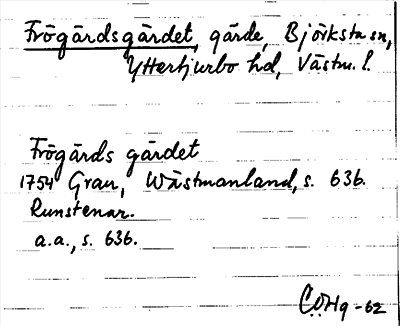 Frögärdsgärdet, gärde, Björksta sn,
Yttertjurbo hd, Västm. l.
Frögärds gärdet
1754 Grau, Wästmanland, s. 636.
Runstenar.
a.a., s. 636.
C.O.Hg -62